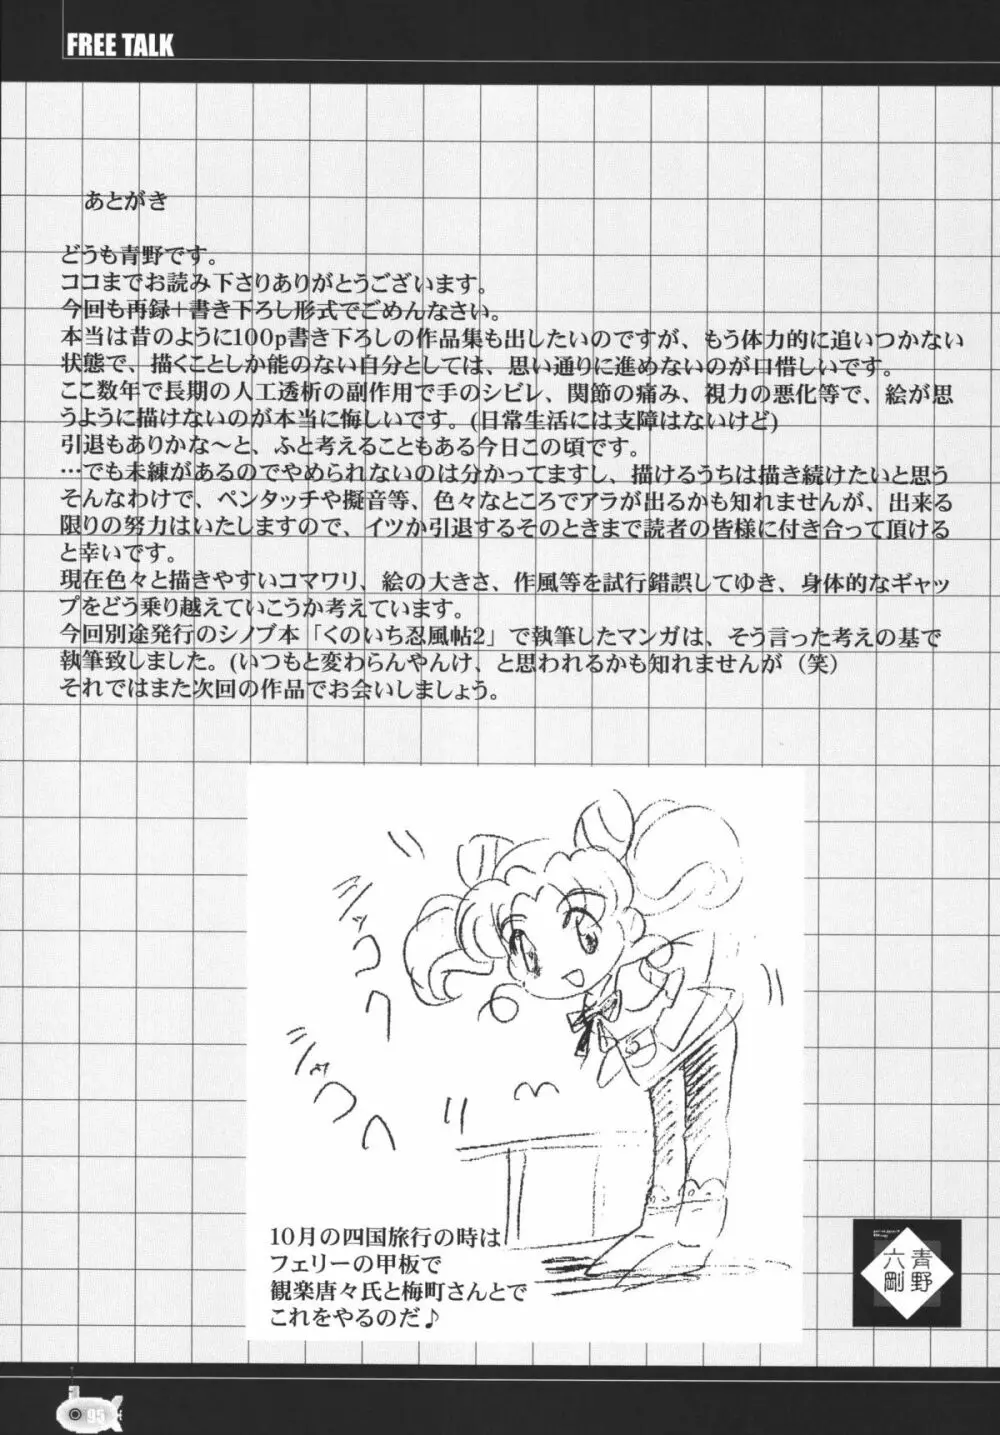 FREE TALK
あとがき
どうも青野です。
ココまでお読み下さりありがとうございます。
今回も再録＋書き下ろし形式でごめんなさい。
本当は昔のように100p書き下ろしの作品集も出したいのですが、もう体力的に追いつかない
状態で、描くことしか能のない自分としては、思い通りに進めないのが口惜しいです。
ここ数年で長期の人工透析の副作用で手のシビレ、関節の痛み、視力の悪化等で、絵が思
うように描けないのが本当に悔しいです。(日常生活には支障はないけど)
引退もありかな～と、ふと考えることもある今日この頃です。
…でも未練があるのでやめられないのは分かってますし、描けるうちは描き続けたいと思う
そんなわけで、ペンタッチや擬音等、色々なところでアラが出るかも知れませんが、出来る
限りの努力はいたしますので、イツか引退するそのときまで読者の皆様に付き合って頂ける
と幸いです。
現在色々と描きやすいコマワリ、絵の大きさ、作風等を試行錯誤してゆき、身体的なギャッ
プをどう乗り越えていこうか考えています。
今回別途発行のシノブ本「くのいち忍風帖2」で執筆したマンガは、そう言った考えの基で
執筆致しました。(いつもと変わらんやんけ、と思われるかも知れませんが（笑）
それではまた次回の作品でお会いしましょう。
シャコ
へ
シャコ
へ
10月の四国旅行の時は
フェリーの甲板で
観楽唐々氏と梅町さんとで
これをやるのだ♪
青野
六剛
95